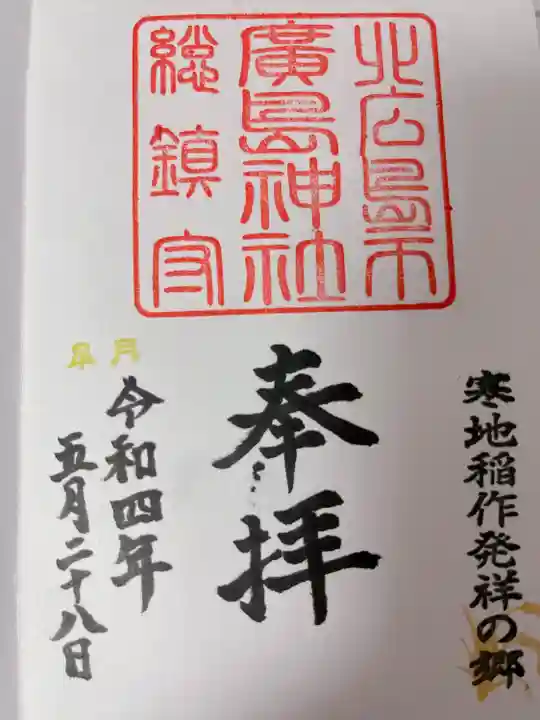 北広島市
廣島神社
総鎮守
寒地稲作発祥の郷
奉拝
皐月
令和四年
五月二十八日